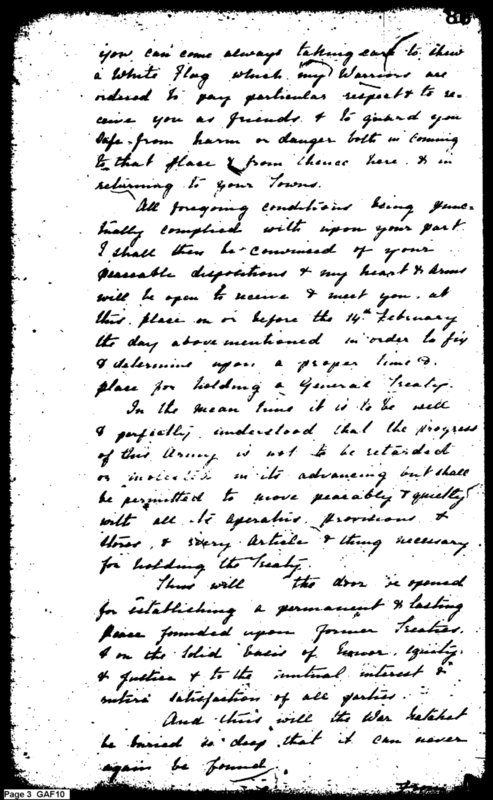 86
you can come always taking care to shew
a White Flag which my Warriors are
ordered to pay particular respect & to re-
ceive you as friends & to guard you
safe from harm or danger both in coming
to that place & from thence here & in
returning to your Towns.
All foregoing conditions being punc-
tually complied with upon your part
I shall then be convinced of your
peaceable dispositions & my heart & arms
will be open to receive & meet you at
this place on or before the 14th February
the day above mentioned in order to fix
& determine upon a proper time &
place for holding a General Treaty.
In the mean time it is to be well
& perfectly understood that the progress
of this Army is not to be retarded
or molested in its advancing but shall
be permitted to move peaceably & quietly
with all its operatins, provisions &
stores, & every article & thing necessary
for holding the Treaty.
Thus will the door be opened
for establishing a permanent & lasting
Peace founded upon former Treaties.
& on the solid basis of honor, equity
& justice & to the mutual interest &
entire satisfaction of all parties.
And thus will the War hatchet
be buried so deep that it can never
again be found.
Page 3 GAF10